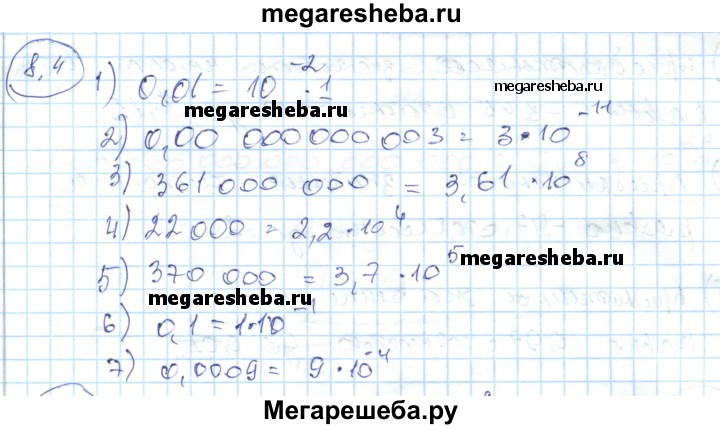 megaresheba.ru
8,4
1) 0,01 = 10⁻² · 1
megaresheba.ru
megaresheba.ru
2) 0,00 000 000 000 003 = 3 · 10⁻¹¹
3) 361 000 000 = 3,61 · 10⁸
4) 22 000 = 2,2 · 10⁴
megaresheba.ru
5) 370 000 = 3,7 · 10⁵
megaresheba.ru
6) 0,1 = 1 · 10⁻¹
7) 0,0009 = 9 · 10⁻⁴
megaresheba.ru
Мегарешеба.ру